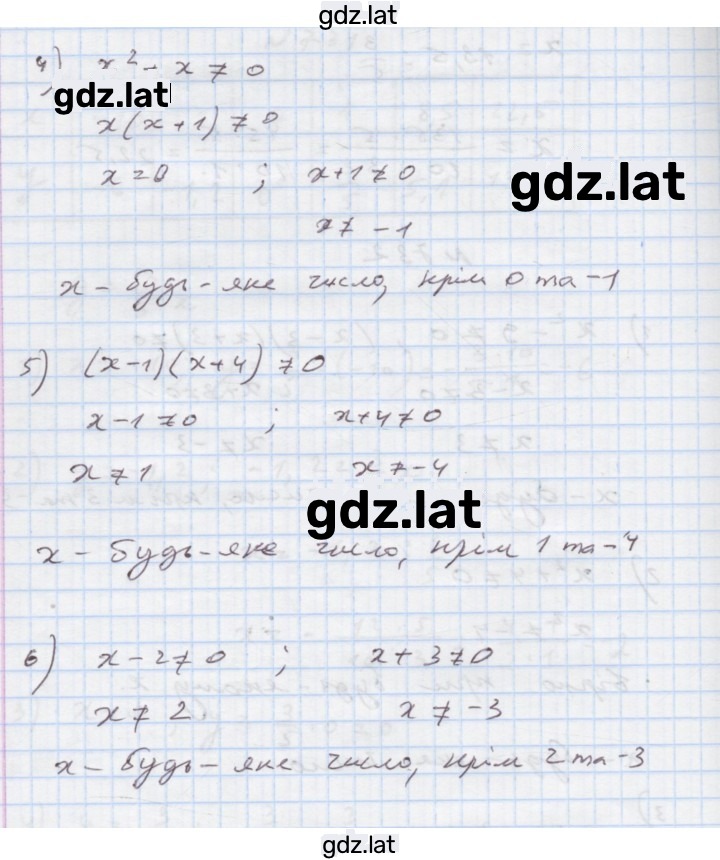 gdz.lat
4) x² - x ≠ 0
gdz.lat
x(x+1) ≠ 0
x = 0 ; x+1 ≠ 0
gdz.lat
x ≠ -1
x - будь-яке число, крім 0 та -1
5) (x-1)(x+4) ≠ 0
x-1 ≠ 0 ; x+4 ≠ 0
x ≠ 1 x ≠ -4
gdz.lat
x - будь-яке число, крім 1 та -4
6) x-2 ≠ 0 ; x+3 ≠ 0
x ≠ 2 x ≠ -3
x - будь-яке число, крім 2 та -3
gdz.lat